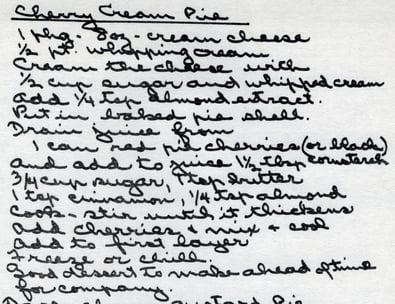 Cherry Cream Pie
1 pkg - 8oz - cream cheese
1/2 pt. whipping cream
Cream the cheese with
1/2 cup sugar and whipped cream
add 1/4 tsp almond extract.
Put in baked pie shell.
Drain juice from
1 can red pie cherries (or black)
and add to juice 1 1/2 tbsp cornstarch
3/4 cup sugar, 1 tsp butter
1 tsp cinnamon, 1/4 tsp almond
Cook - stir until it thickens
add cherries & mix & cool
add to first layer
Freeze or chill.
Good dessert to make ahead of time
for company.